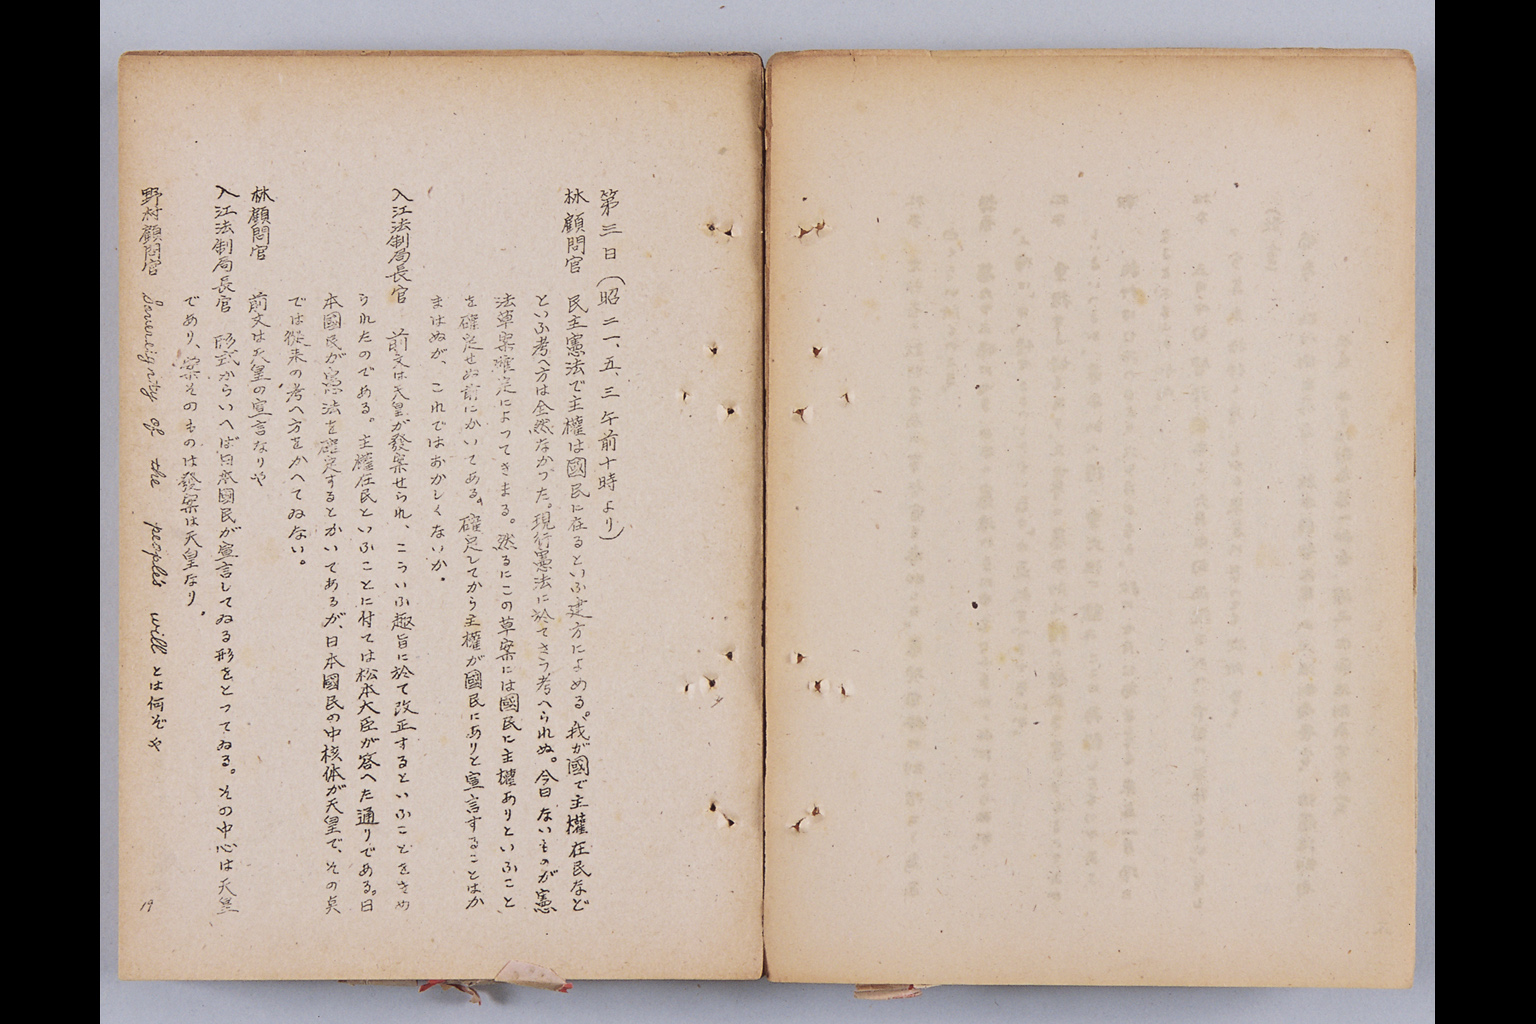 第三日（昭二一、五、三 午前十時より）
林顧問官 民主憲法で主權は國民に在るといふ建方によめる。我が國で主權在民など
といふ考へ方は全然なかつた。現行憲法に於てさう考へられぬ。今日ないものが憲
法草案確定によつてきまる。然るにこの草案には國民に主權ありといふこと
を確定せぬ前にかいてある。確定してから主權が國民にありと宣言することはか
まはぬが、これではおかしくないか。
入江法制局長官 前文は天皇が發案せられ、こういふ趣旨に於て改正するといふことをきめ
られたのである。主權在民といふことに付ては松本大臣が答へた通りである。日
本國民が憲法を確定するとかいてあるが、日本國民の中核体が天皇で、その点
では從来の考へ方をかへてゐない。
林顧問官 前文は天皇の宣言なりや
入江法制局長官 形式からいへば日本國民が宣言してゐる形をとつてゐる。その中心は天皇
であり、案そのものは發案は天皇なり。
野村顧問官 Sovereignity of the people's will とは何ぞや
19